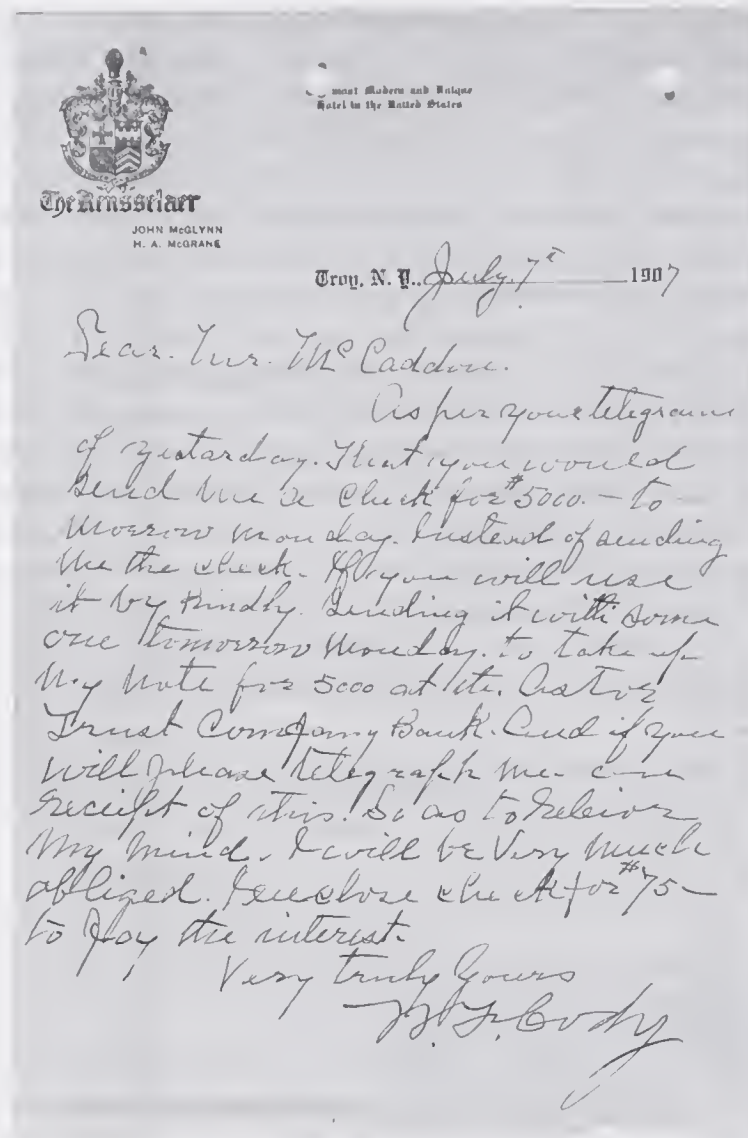 most Modern and Unique
Hotel in the United States
The Rensselaer
JOHN McGLYNN
H. A. McGRANE
Troy, N. Y., July. 7th 1907
Dear. Mr. McCaddon.
As per your telegram
of yestarday. That you would
send me a check for $5000.- to
morrow monday. Instead of sending
me the check. If you will use
it by Kindly. Sending it with some
one tomorrow Monday. to take up
my note for 5000 at the. Astor
Trust Company Bank. And if you
will please telegraph me on
receipt of this. So as to releive
my mind. I will be Very much
obliged. I enclose check for $75-
to pay the interest.
Very truly Yours
W. F. Cody